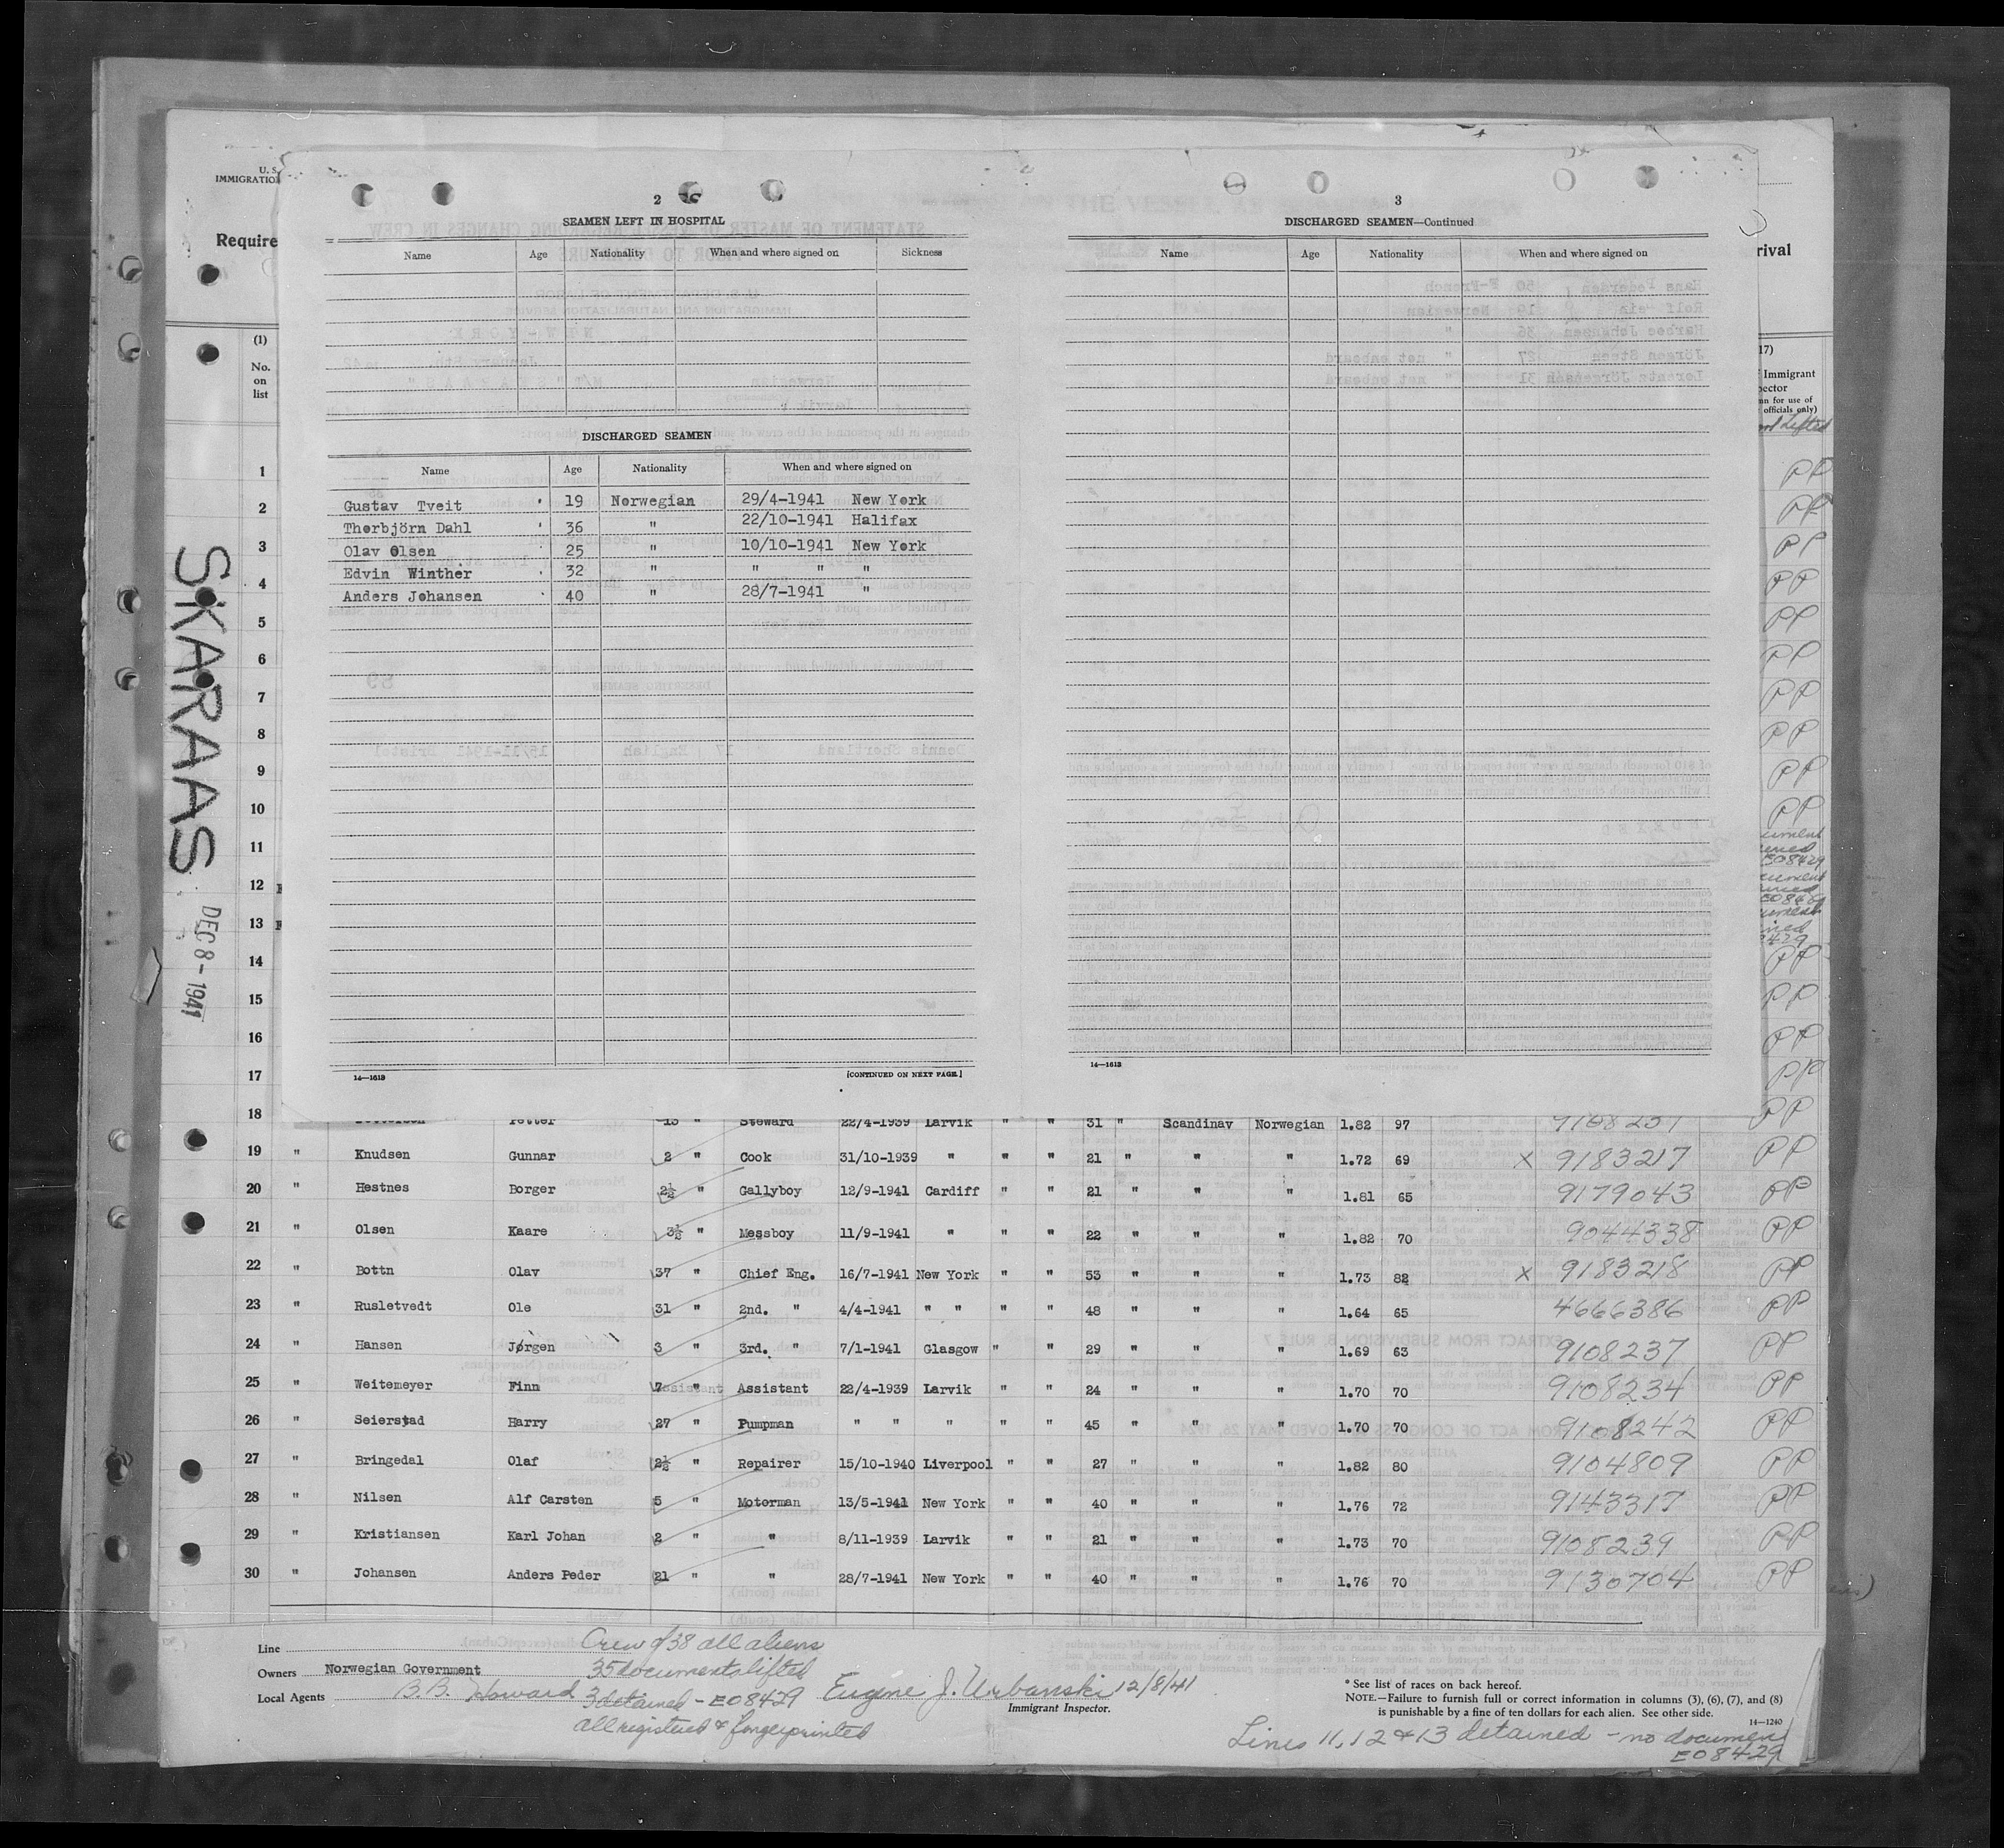 U. S.
IMMIGRATIO
Require
rival
2
SEAMEN LEFT IN HOSPITAL
Name Age Nationality When and where signed on Sickness
DISCHARGED SEAMEN
Name Age Nationality When and where signed on
Gustav Tveit 19 Norwegian 29/4-1941 New York
Thorbjörn Dahl 36 " 22/10-1941 Halifax
Olav Olsen 25 " 10/10-1941 New York
Edvin Winther 32 " " " "
Anders Johansen 40 " 28/7-1941 "
14—1613 [CONTINUED ON NEXT PAGE.]
3
DISCHARGED SEAMEN—Continued
Name Age Nationality When and where signed on
14—1613
SKARAAS
DEC 8-1941
(1)
No.
on
list
17)
Immigrant
pector
mn for use of
officials only)
Lifted
1 PP
2 PP
3 PP
4 PP
5 PP
6 PP
7 PP
8 PP
9 PP
10 PP
11
E08429
12
13
14 PP
15 PP
16 PP
17 PP
18 Petter 13 " Steward 22/4-1939 Larvik " " 31 " Scandinav Norwegian 1.82 97 PP
19 " Knudsen Gunnar 2 " Cook 31/10-1939 " " " 21 " " " 1.72 69 X 9183217 PP
20 " Hestnes Borger 2½ " Gallyboy 12/9-1941 Cardiff " " 21 " " " 1.81 65 9179043 PP
21 " Olsen Kaare 3½ " Messboy 11/9-1941 " " " 22 " " " 1.82 70 9044338 PP
22 " Bottn Olav 37 " Chief Eng. 16/7-1941 New York " " 53 " " " 1.73 82 X 9183218 PP
23 " Rusletvedt Ole 31 " 2nd. " 4/4-1941 " " " " 48 " " " 1.64 65 4666386 PP
24 " Hansen Jørgen 3 " 3rd. " 7/1-1941 Glasgow " " 29 " " " 1.69 63 9108237 PP
25 " Weitemeyer Finn 7 " Assistant 22/4-1939 Larvik " " 24 " " " 1.70 70 9108234 PP
26 " Seierstad Harry 27 " Pumpman " " " " " 45 " " " 1.70 70 9108242 PP
27 " Bringedal Olaf 2½ " Repairer 15/10-1940 Liverpool " " 27 " " " 1.82 80 9104809 PP
28 " Nilsen Alf Carsten 5 " Motorman 13/5-1941 New York " " 40 " " " 1.76 72 9143317 PP
29 " Kristiansen Karl Johan 2 " " 8/11-1939 Larvik " " 21 " " " 1.73 70 9108239 PP
30 " Johansen Anders Peder 21 " " 28/7-1941 New York " " 40 " " " 1.76 70 9130704 PP
Line Crew of 38 all aliens
Owners Norwegian Government 35 documents lifted
Local Agents B.B. Howard 3 detained - E08429 Eugene J. Urbanski 12/8/41
Immigrant Inspector.
all registered & fingerprinted
* See list of races on back hereof.
NOTE.—Failure to furnish full or correct information in columns (3), (6), (7), and (8)
is punishable by a fine of ten dollars for each alien. See other side.
14—1240
Lines 11, 12 & 13 detained - no document
E08429